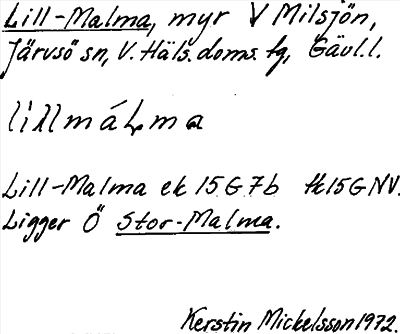 Lill-Malma, myr V Milsjön,
Järvsö sn, V. Häls. doms. fg, Gävl. l.
lillmáLma
Lill-Malma ek 15G7b tk15GNV.
Ligger Ö Stor-Malma.
Kerstin Mickelsson 1972.